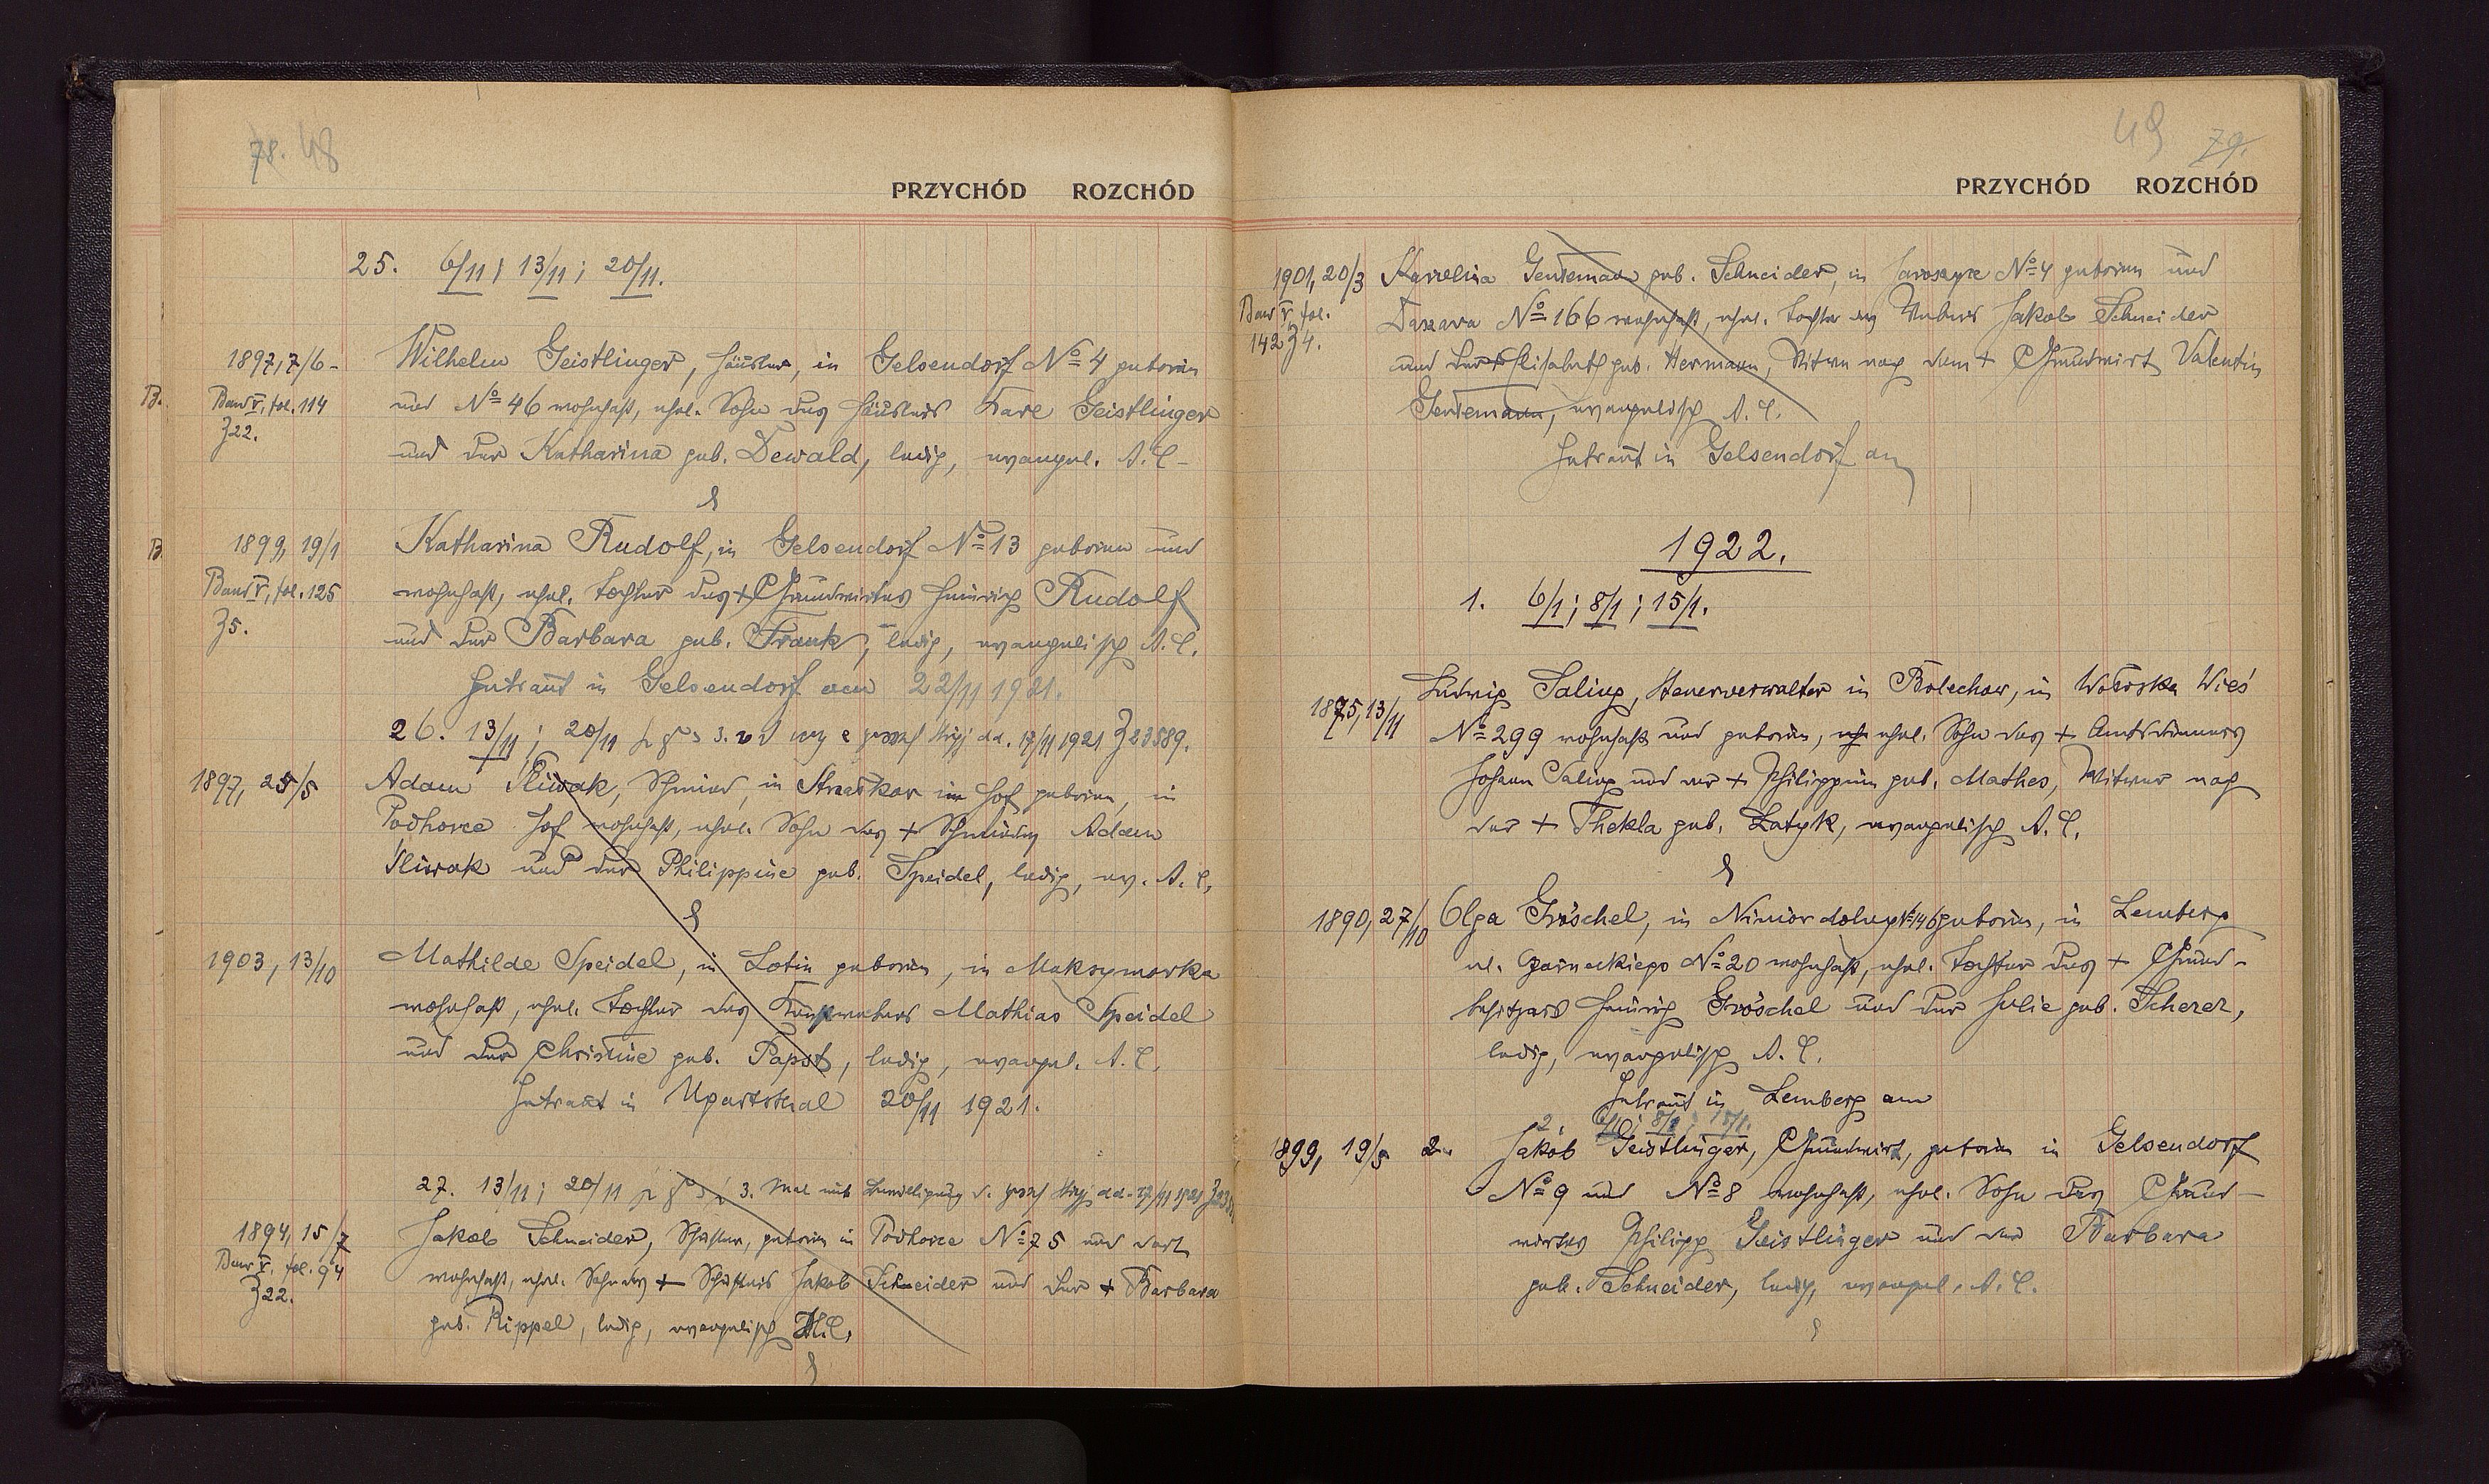 78. 48
PRZYCHÓD ROZCHÓD
25. 6/11; 13/11; 20/11.
1897, 7/6 -
Band V, fol. 114
Z 22.
Wilhelm Geistlinger, Häusler, in Gelsendorf No 4 geboren
und No 46 wohnhaft, ehel. Sohn des Häuslers Karl Geistlinger
und der Katharina geb. Dewald, ledig, evangel. A.C.
&
1899, 19/1
Band V, fol. 125
Z 5.
Katharina Rudolf, in Gelsendorf No 13 geboren und
wohnhaft, ehel. Tochter des + Grundwirtes Heinrich Rudolf
und der Barbara geb. Frank, ledig, evangelisch A.C.
Getraut in Gelsendorf am 22/11 1921.
26. 13/11; 20/11 3. dd. 17/11 1921 Z 23589.
1897, 25/5
Adam Śliwak, Schmied, in Hof geboren, in
Podhorce Hof wohnhaft, ehel. Sohn des + Schmiedes Adam
Śliwak und der Philippine geb. Speidel, ledig, ev. A.C.
&
1903, 13/10
Mathilde Speidel, in Lotin geboren, in Maksymówka
wohnhaft, ehel. Tochter des Mathias Speidel
und der Christine geb. Papst, ledig, evangel. A.C.
Getraut in Ugartsthal 20/11 1921.
27. 13/11; 20/11 3. Mal mit Bewilligung d. dd. 17/11 1921
1894, 15/7
Band V, fol. 94
Z 22.
Jakob Schneider, Schuster, geboren in Podhorce No 75 und dort
wohnhaft, ehel. Sohn des + Schusters Jakob Schneider und der + Barbara
geb. Rippel, ledig, evangelisch H.C.
&
49 79.
PRZYCHÓD ROZCHÓD
1901, 20/3
Band V fol.
142 Z 4.
Karolina Gentemann geb. Schneider, in No 4 geboren und
Daszawa No 166 wohnhaft, ehel. Tochter des Webers Jakob Schneider
und der + Elisabeth geb. Hermann, Witwe nach dem + Grundwirt Valentin
Gentemann, evangelisch A.C.
Getraut in Gelsendorf am
1922.
1. 6/1; 8/1; 15/1.
1875, 13/11
Ludwig Saling, Steuerverwalter in Bolechow, in Wołoska Wieś
No 299 wohnhaft und geboren, ehel. Sohn des + Amtsdieners
Johann Saling und der + Philippine geb. Mathes, Witwer nach
der + Thekla geb. Łatyk, evangelisch A.C.
&
1890, 27/10
Olga Gröschel, in No 146 geboren, in Lemberg
ul. No 20 wohnhaft, ehel. Tochter des + Grund-
besitzers Heinrich Gröschel und der Julie geb. Scherer,
ledig, evangelisch A.C.
Getraut in Lemberg am
2. 8/1; 15/1.
1899, 19/5
2. Jakob Geistlinger, Grundwirt, geboren in Gelsendorf
No 9 und No 8 wohnhaft, ehel. Sohn des Grund-
wirtes Philipp Geistlinger und der Barbara
geb. Schneider, ledig, evangel. A.C.
&